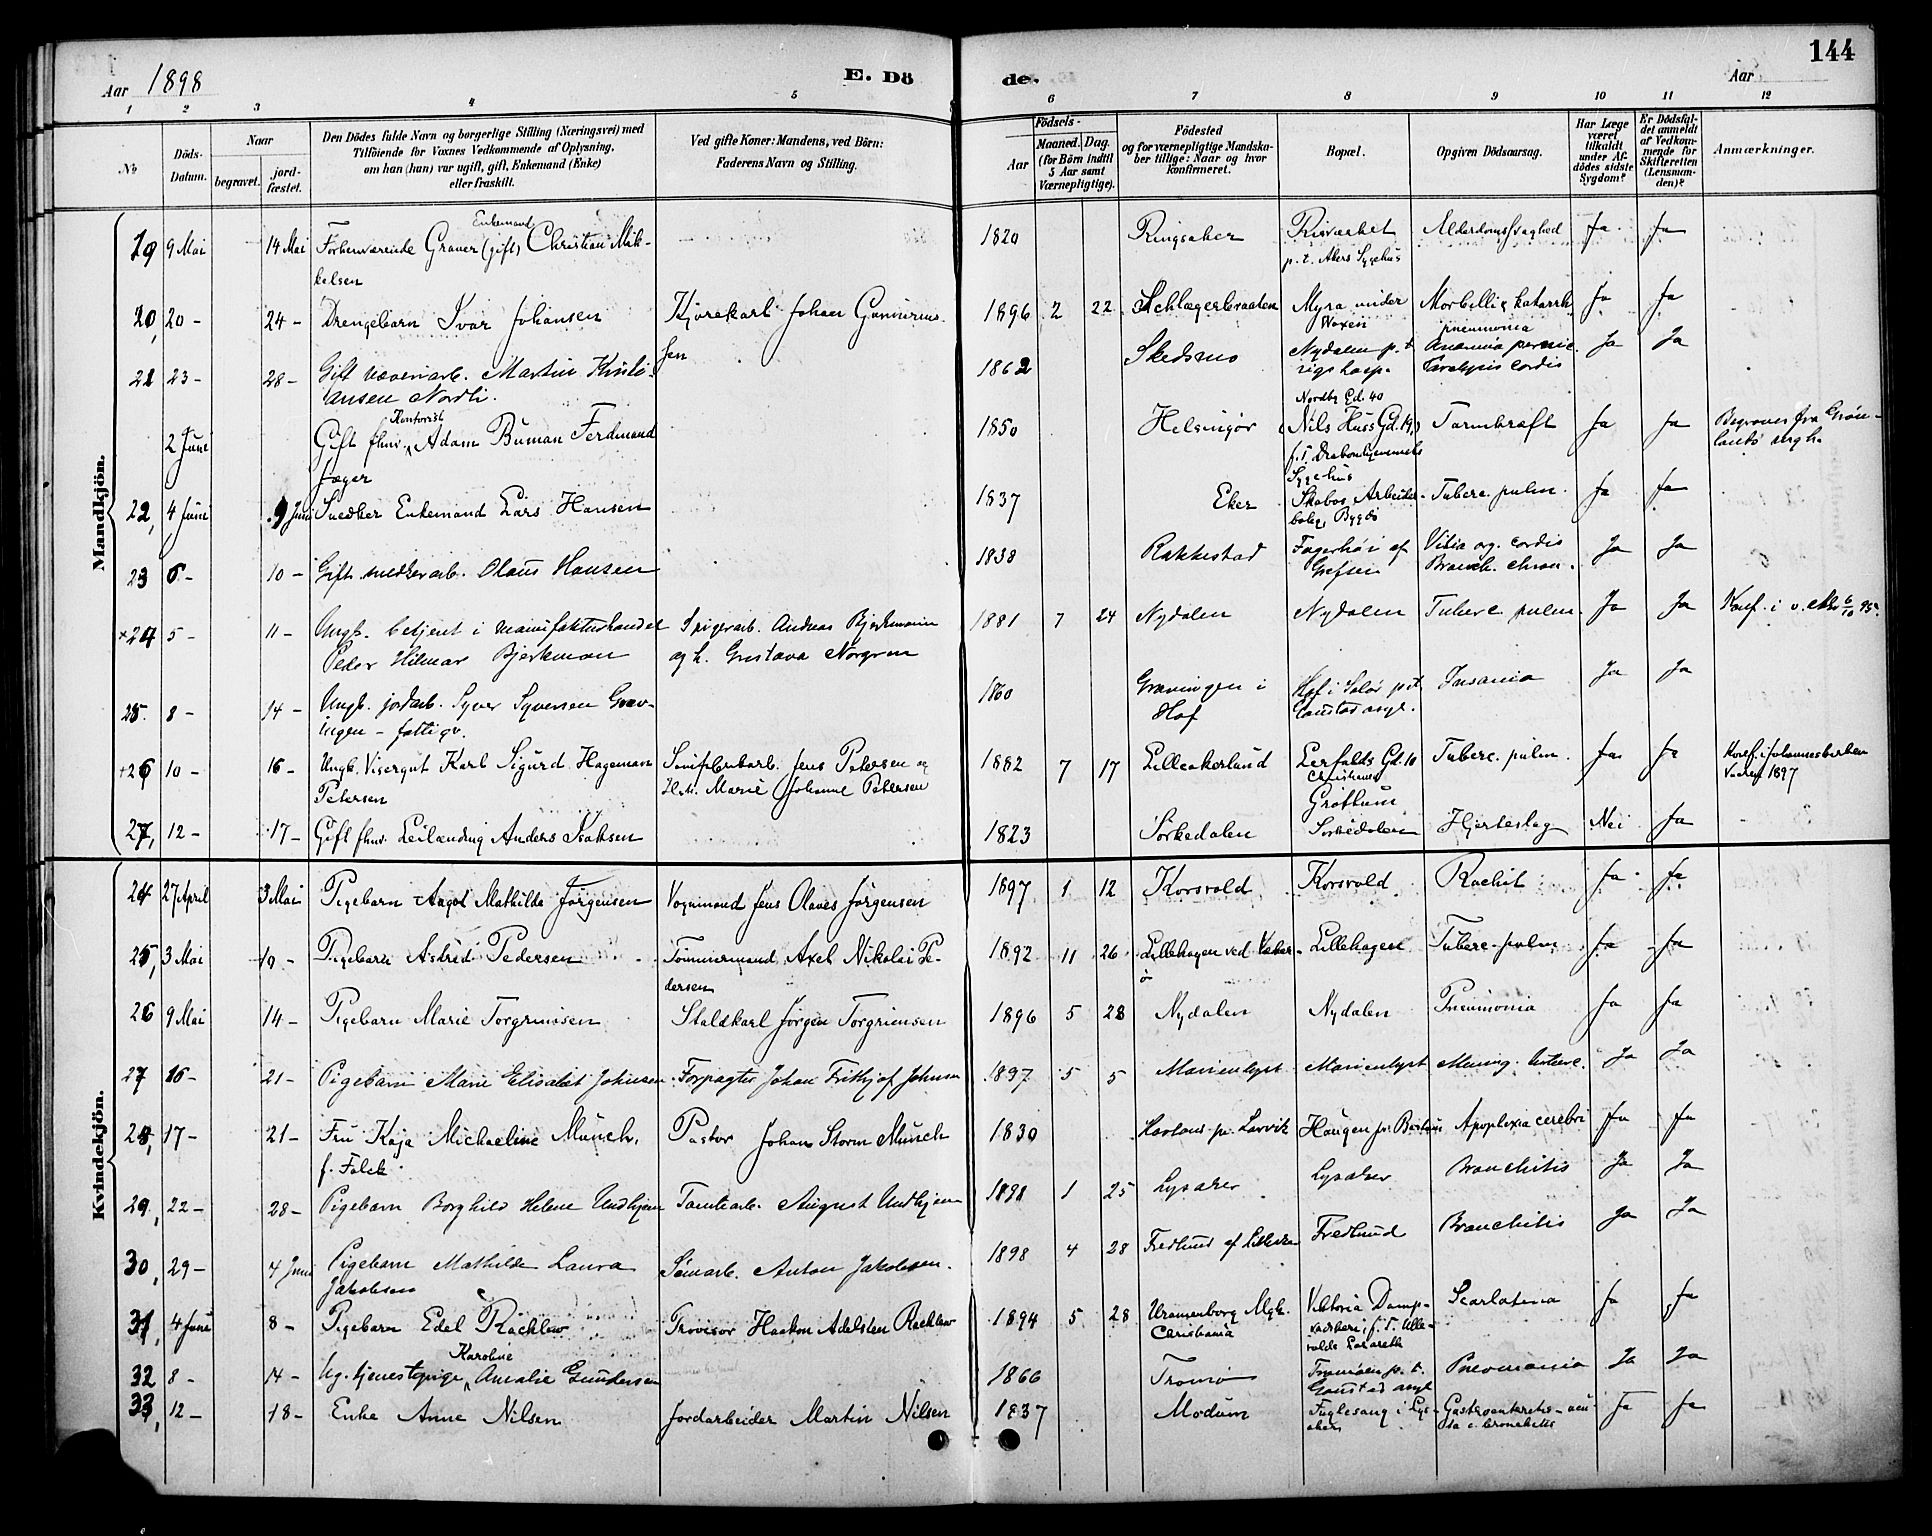 144
Aar 1898
E. Dö
de.
Aar
1 2 3 4 5 6 7 8 9 10 11 12
No
Döds-Datum.
Naar
begravet.
jord-fæstet.
Den Dödes fulde Navn og borgerlige Stilling (Næringsvei) med
Tilföiende for Voxnes Vedkommende af Oplysning,
om han (hun) var ugift, gift, Enkemand (Enke)
eller fraskilt.
Ved gifte Koner: Mandens, ved Börn:
Faderens Navn og Stilling.
Födsels-
Aar
Maaned. Dag.
(for Börn indtil
5 Aar samt
Værnepligtige).
Födested
og for værnepligtige Mandska-
ber tillige: Naar og hvor
konfirmeret.
Bopæl.
Opgiven Dödsaarsag.
Har Læge
været
tilkaldt
under Af-
dödes sidste
Sygdom?
Er Dödsfal-
det anmeldt
af Vedkom-
mende for
Skifteretten
(Lensman-
den)?
Anmærkninger.
Mandkjön.
Enkemand
19 9 Mai 14 Mai Forhenværende Graver (gift) Christian Mik- 1820 Ringsaker Risværket Alderdomssvaghed Ja Ja
kelsen p. t. Akers Sygehus
20, 20 - 24 - Drengebarn Ivar Johansen Kjörekarl Johan Gunnerius- 1896 2 22 Schlægerbraaten Myra under Morbilli & katarrh. Ja Ja
sen Voxen pneumonia
21 23 - 28 - Gift væveriarb. Martin Kristi- 1862 Skedsmo Nydalen p. t. Anæmia pernic. Ja Ja
ansen Nordli. rigshosp. Paralysis cordis
Kontorist Nordby Gd. 40
2 Juni Gift fhnv. Adam Buman Ferdinand 1850 Helsingör Nils Hus Gd. 19, Tarmkræft Ja Ja Begraves fra Grön-
Jæger p. t. Sygehus lands
22, 4 Juni 9 Juni Snedker Enkemand Lars Hansen 1837 Eker Skabos Arbeider- Tuberc. pulm. Ja Ja
bolig, Bygdö
23 6 - 10 - Gift snedkerarb. Olaus Hansen 1838 Rakkestad Fagerhöi af Vitia org. cordis Ja Ja
Grefsen Bronch. chron.
x24 5 - 11 - Ungk. betjent i manufakturhandel Spigerarb. Andreas Bjerkmann 1881 7 24 Nydalen Nydalen Tuberc. pulm Ja Ja Konf. i v. Aker 6/10 95.
Peder Hilmar Bjerkman og h. Gustava Norgren
25. 8 - 14 - Ungk. jordarb. Syver Syversen Grav- 1860 Gravingen i Hof i Solör p. t. Insania Ja Ja
ingen - fattigv. Hof Gaustad asyl.
+26 10 - 16 - Ungk. Visergut Karl Sigurd Hageman Jens Petersen og 1882 7 17 Lilleakerlund Lerfalds Gd. 10 Tuberc. pulm. Ja Ja Konf. i Johanneskirken
Petersen H. Marie Johanne Petersen Christiania Vaaren 1897
Gröttum
27, 12 - 17 - Gift fhnv. Leilænding Anders Isaksen 1823 Sörkedalen Sörkedalen Hjerteslag Nei Ja
Kvindekjön.
24 27 April 3 Mai Pigebarn Aagot Mathilda Jörgensen Vognmand Jens Olaves Jörgensen 1897 1 12 Korsvold Korsvold Rachit Ja Ja
25, 3 Mai 10 - Pigebarn Astrid Pedersen Tömmermand Axel Nikolai Pe- 1892 11 26 Lillehagen ved Væker- Lillehagen Tuberc. pulm Ja Ja
dersen ö
26 9 Mai 14 - Pigebarn Marie Torgrimsen Staldkarl Jörgen Torgrimsen 1896 5 28 Nydalen Nydalen Pneumonia Ja Ja
27 16 - 21 - Pigebarn Marie Elisabet Johnsen Forpagter Johan Frithjof Johnsen 1897 5 5 Marienlyst Marienlyst Mening. tuberc. Ja Ja
28, 17 - 21 - Fru Kaja Michaeline Münch, Pastor Johan Storm Münch 1830 pr. Larvik Haugen pr. Apoplexia cerebri Ja Ja
f. Falck.
29, 22 - 28 - Pigebarn Borghild Helene Undhjem Tomtearb. August Undhjem 1898 1 25 Lysaker Lysaker Bronchitis Ja Ja
30, 29 - 4 Juni Pigebarn Mathilde Laura Sömarb. Anton Jakobsen. 1898 4 28 Fredlund af Fredlund Bronchitis Ja Ja
Jakobsen
31, 4 Juni 8 - Pigebarn Edel Rachlew Provisor Haakon Adelsten Rachlew 1894 5 28 Uranienborg Mgh. Viktoria Damp- Scarlatina Ja Ja
Christiania vaskeri, p. t. Ulle-
volds Lazareth
Karoline
32 8 - 14 - Ug. tjenestepige Amalie Gundersen 1866 Tromö Tromöen p. t. Pneumonia Ja Ja
Gaustad asyl
33, 12 - 18 - Enke Anne Nilsen Jordarbeider Martin Nilsen 1837 Modum Fuglesang i Lys- Ja Ja
aker